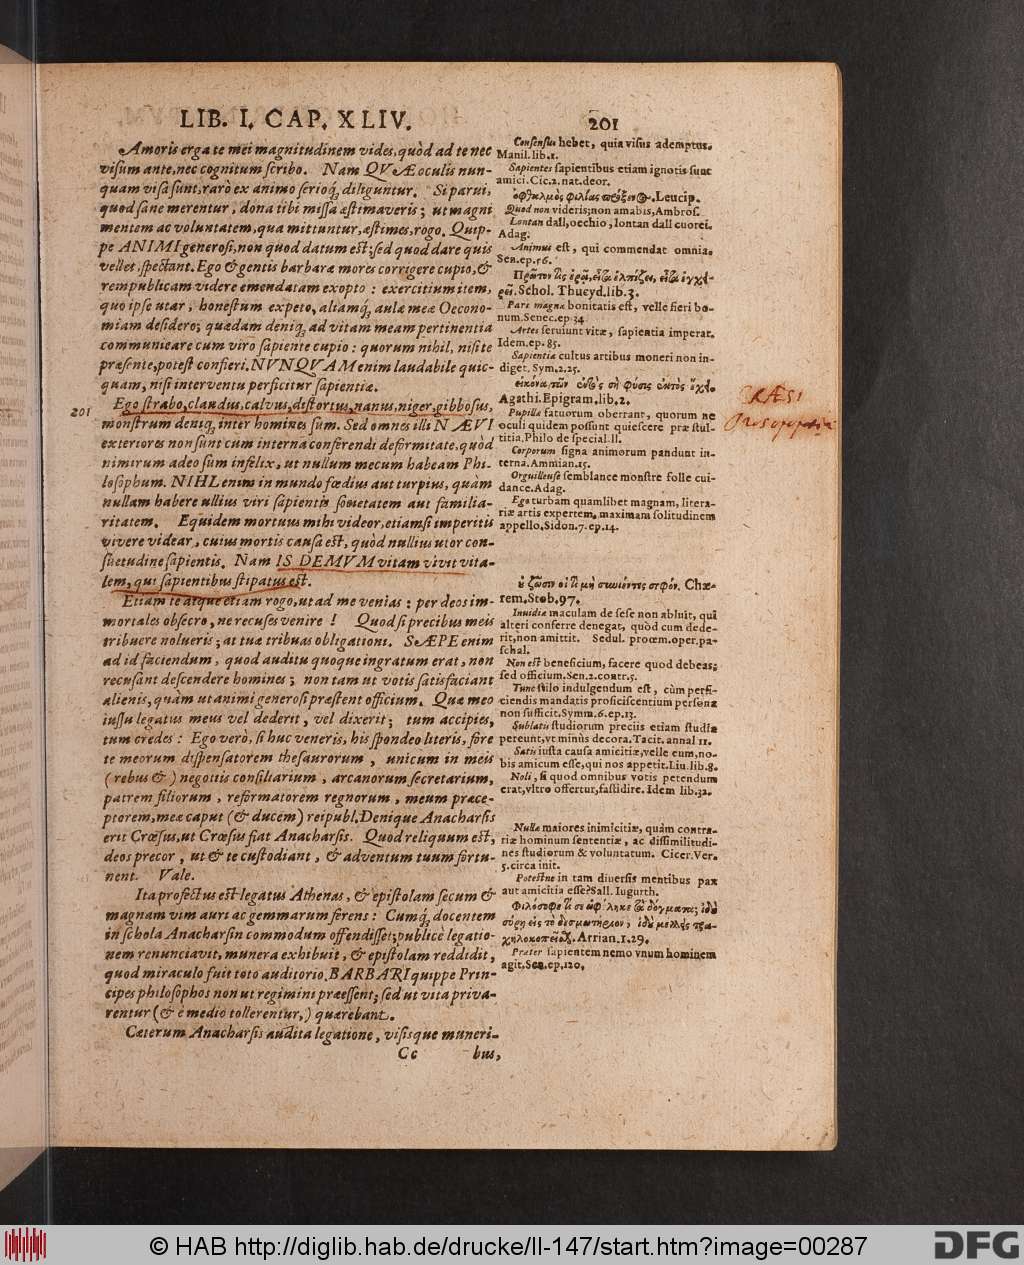 LIB. I. CAP. XLIV. 201
Amoris erga te mei magnitudinem vides, quòd ad te nec
visum ante, nec cognitum scribo. Nam QVÆ oculis nun-
quam visa sunt, rarò ex animo serioq́; diliguntur. Si parui,
quod sane merentur, dona tibi missa æstimaveris; ut magni
mentem ac voluntatem, qua mittuntur, æstimes, rogo. Quip-
pe ANIMI generosi, non quod datum est; sed quod dare quis
vellet, spectant. Ego & gentis barbaræ mores corrigere cupio, &
rempublicam videre emendatam exopto: exercitium item,
quo ipse utar, honestum expeto, aliamq́; aulæ meæ Oecono-
miam desidero; quædam deniq́; ad vitam meam pertinentia
communicare cum viro sapiente cupio: quorum nihil, nisi te
præsente, potest confieri. NVNQVAM enim laudabile quic-
quam, nisi interventu perficitur sapientiæ.
201 Ego strabo, claudus, calvus, distortus, nanus, niger, gibbosus,
monstrum deniq́; inter homines sum. Sed omnes illi NÆVI
exteriores non sunt cum interna conferendi deformitate, quòd
nimirum adeo sum infelix, ut nullum mecum habeam Phi-
losophum. NIHL enim in mundo fœdius aut turpius, quàm
nullam habere ullius viri sapientis societatem aut familia-
ritatem. Equidem mortuus mihi videor, etiamsi imperitis
vivere videar, cuius mortis causa est, quòd nullius utor con-
suetudine sapientis. Nam IS DEMVM vitam vivit vita-
lem, qui sapientibus stipatus est.
Etiam te atque etiam rogo, ut ad me venias: per deos im-
mortales obsecro, ne recuses venire! Quod si precibus meis
tribuere nolueris; at tuæ tribuas obligationi. SÆPE enim
ad id faciendum, quod auditu quoque ingratum erat, non
recusant descendere homines; non tam ut votis satisfaciant
alienis, quàm ut animi generosi præstent officium. Quæ meo
iussu legatus meus vel dederit, vel dixerit; tum accipies,
tum credes: Ego verò, si huc veneris, his spondeo literis, fore
te meorum dispensatorem thesaurorum, unicum in meis
(rebus &) negotiis consiliarium, arcanorum secretarium,
patrem filiorum, reformatorem regnorum, meum præce-
ptorem, meæ caput (& ducem) reipubl. Denique Anacharsis
erit Crœsus, ut Crœsus fiat Anacharsis. Quod reliquum est,
deos precor, ut & te custodiant, & adventum tuum fortu-
nent. Vale.
Ita profectus est legatus Athenas, & epistolam secum &
magnam vim auri ac gemmarum ferens: Cumq́; docentem
in schola Anacharsin commodum offendisset; publicè legatio-
nem renunciavit, munera exhibuit, & epistolam reddidit,
quod miraculo fuit toto auditorio. BARBARI quippe Prin-
cipes philosophos non ut regimini præessent; sed ut vita priva-
rentur (& è medio tollerentur,) quærebant.
Cæterum Anacharsis audita legatione, visisque muneri-
Cc bus,
Consensus hebet, quia visus ademptus.
Manil. lib. 1.
Sapientes sapientibus etiam ignotis sunt
amici. Cic. 2. nat. deor.
Leucip.
Quod non videris; non amabis, Ambros.
Lontan dall, oechio, lontan dall cuorei.
Adag.
Animus est, qui commendat omnia.
Sen. ep. 16.
Schol. Thucyd. lib. 3.
Pars magna bonitatis est, velle fieri bo-
num. Senec. ep. 34
Artes seruiunt vitæ, sapientia imperat.
Idem. ep. 85.
Sapientiæ cultus artibus moneri non in-
diget. Sym. 2. 25.
Agathi. Epigram. lib. 2.
Pupillæ fatuorum oberrant, quorum ne
oculi quidem possunt quiescere præ stul-
titia. Philo de special. ll.
Corporum signa animorum pandunt in-
terna. Ammian. 15.
Orguilleuse semblance monstre folle cui-
dance. Adag.
Ego turbam quamlibet magnam, litera-
riæ artis expertem, maximam solitudinem
appello. Sidon. 7. ep. 14.
Chæ-
rem. Stob. 97.
Inuidiæ maculam de sese non abluit, qui
alteri conferre denegat, quòd cum dede-
rit, non amittit. Sedul. proœm. oper. pa-
schal.
Non est beneficium, facere quod debeas;
sed officium. Sen. 2. contr. 5.
Tunc stilo indulgendum est, cùm perfi-
ciendis mandatis proficiscentium persona
non sufficit. Symm. 6. ep. 13.
Sublatis studiorum preciis etiam studia
pereunt, vt minùs decora. Tacit. annal 11.
Satis iusta causa amicitiæ, velle eum, no-
bis amicum esse, qui nos appetit. Liu. lib. 8.
Noli, si quod omnibus votis petendum
erat, vltro offertur, fastidire. Idem lib. 32.
Nullæ maiores inimicitiæ, quàm contra-
riæ hominum sententiæ, ac dissimilitudi-
nes studiorum & voluntatum. Cicer. Ver.
5. circa init.
Potestne in tam diuersis mentibus pax
aut amicitia esse? Sall. Iugurth.
Arrian. 1. 29.
Præter sapientem nemo vnum hominem
agit. Sen. ep. 120.
CRÆSI
Prosopopœia
© HAB http://diglib.hab.de/drucke/ll-147/start.htm?image=00287
DFG